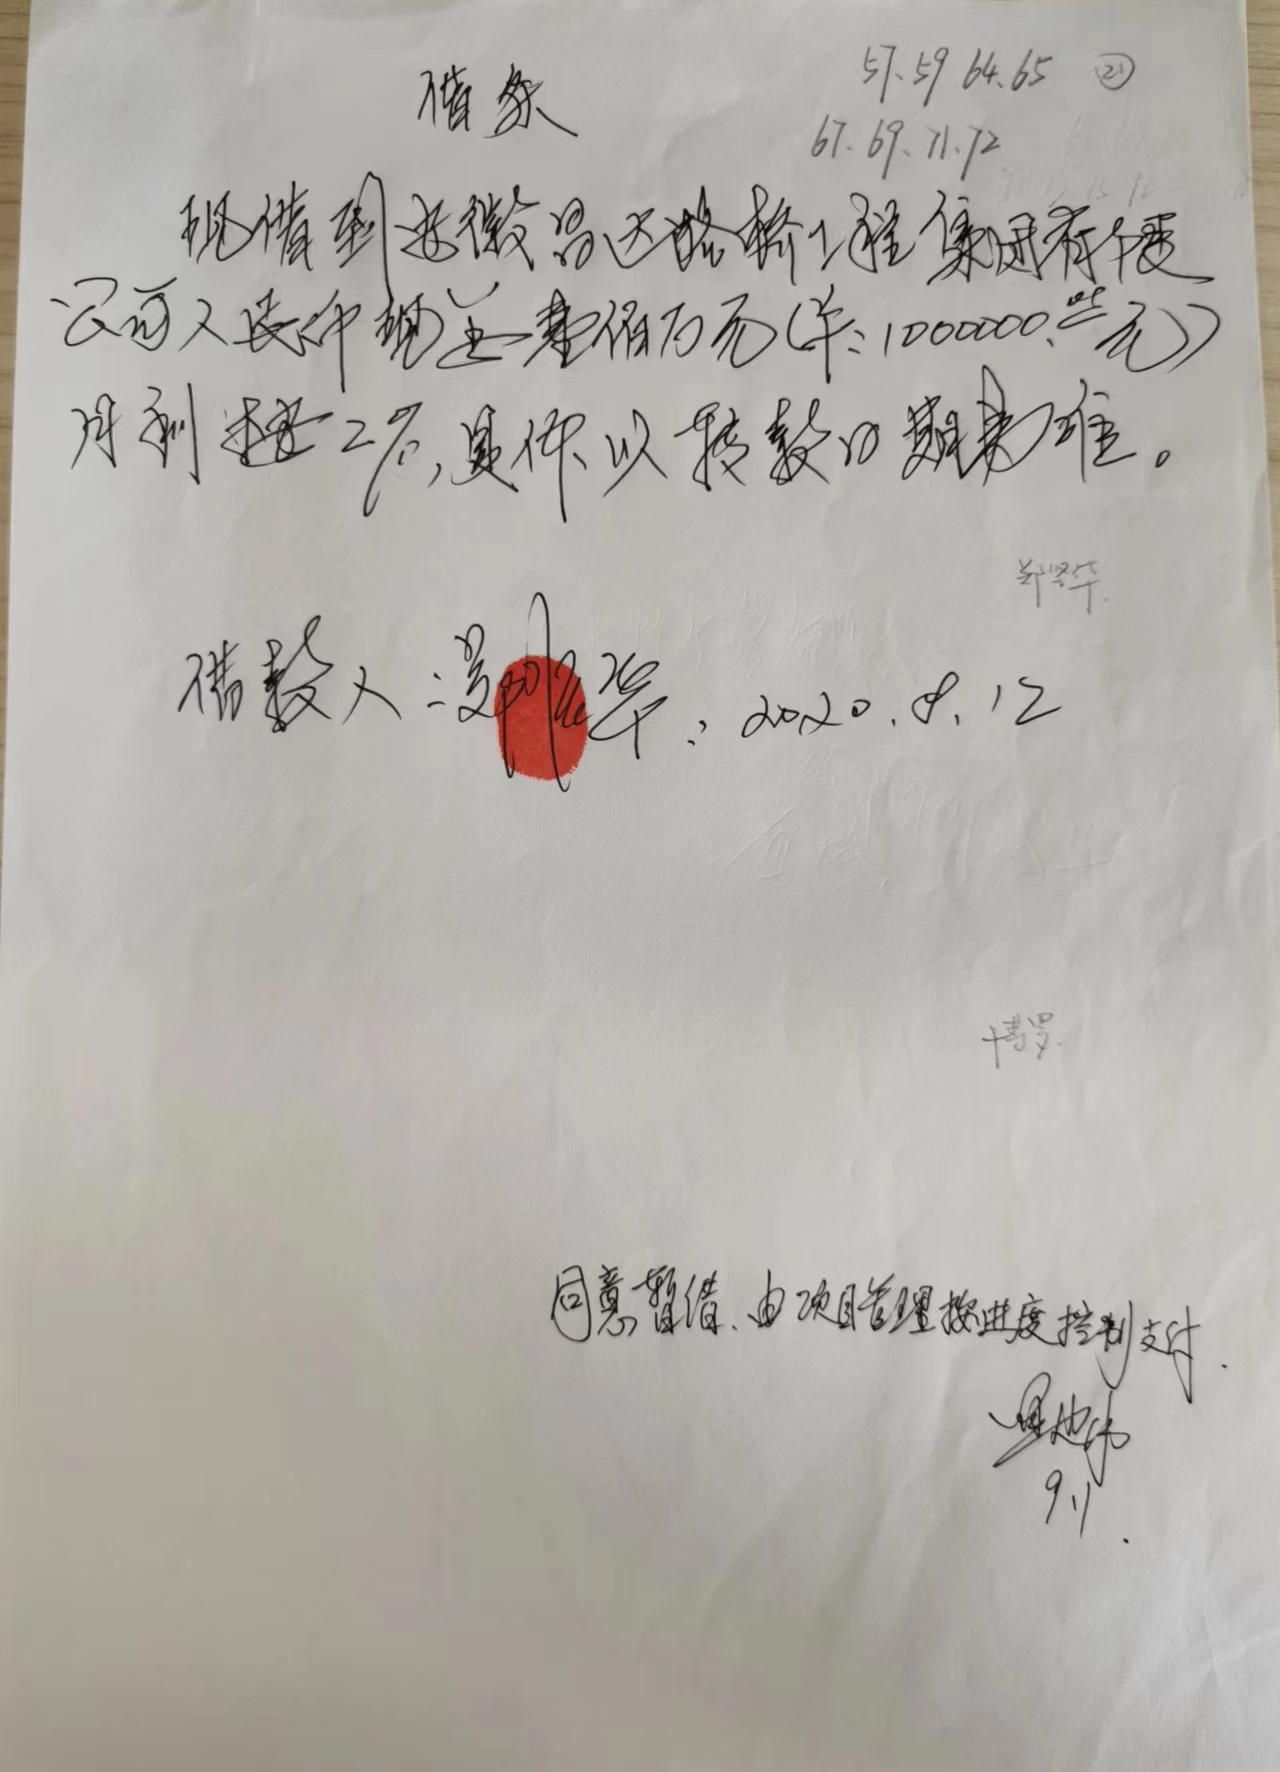 57.59 64.65 ㉑
67.69.71.72
借条
现借到安徽昌达路桥工程集团有限
公司人民币现金壹佰万元(¥:1000000.00元)
月利 2%,具体以转款日期为准。
郑坚华
借款人:郑坚华. 2020.8.12
同意暂借、由项目管理按进度控制支付.
9.11